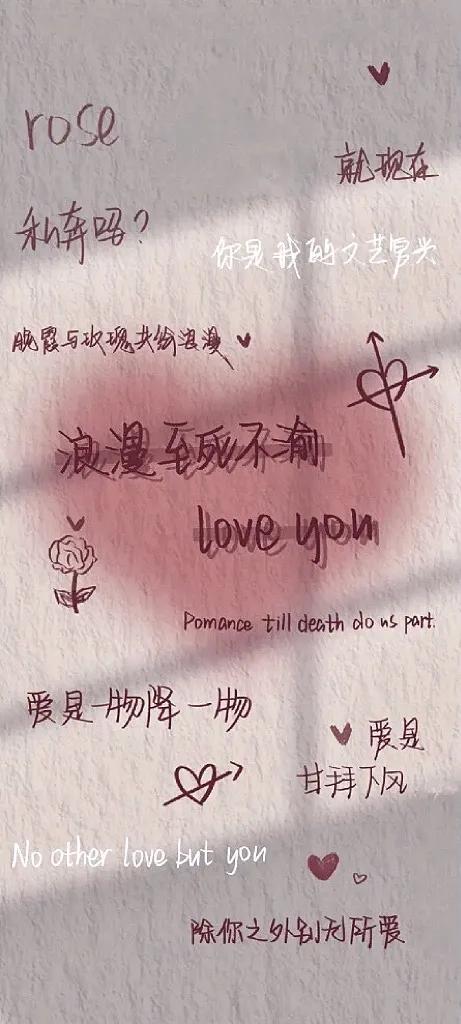 rose
就现在
私奔吗？
你是我的文艺冒头
晚霞与玫瑰共纷浪漫
浪漫至死不渝
love you
Pomance till death do us part.
爱是一物降一物
爱是
甘拜下风
No other love but you
除你之外别无所爱